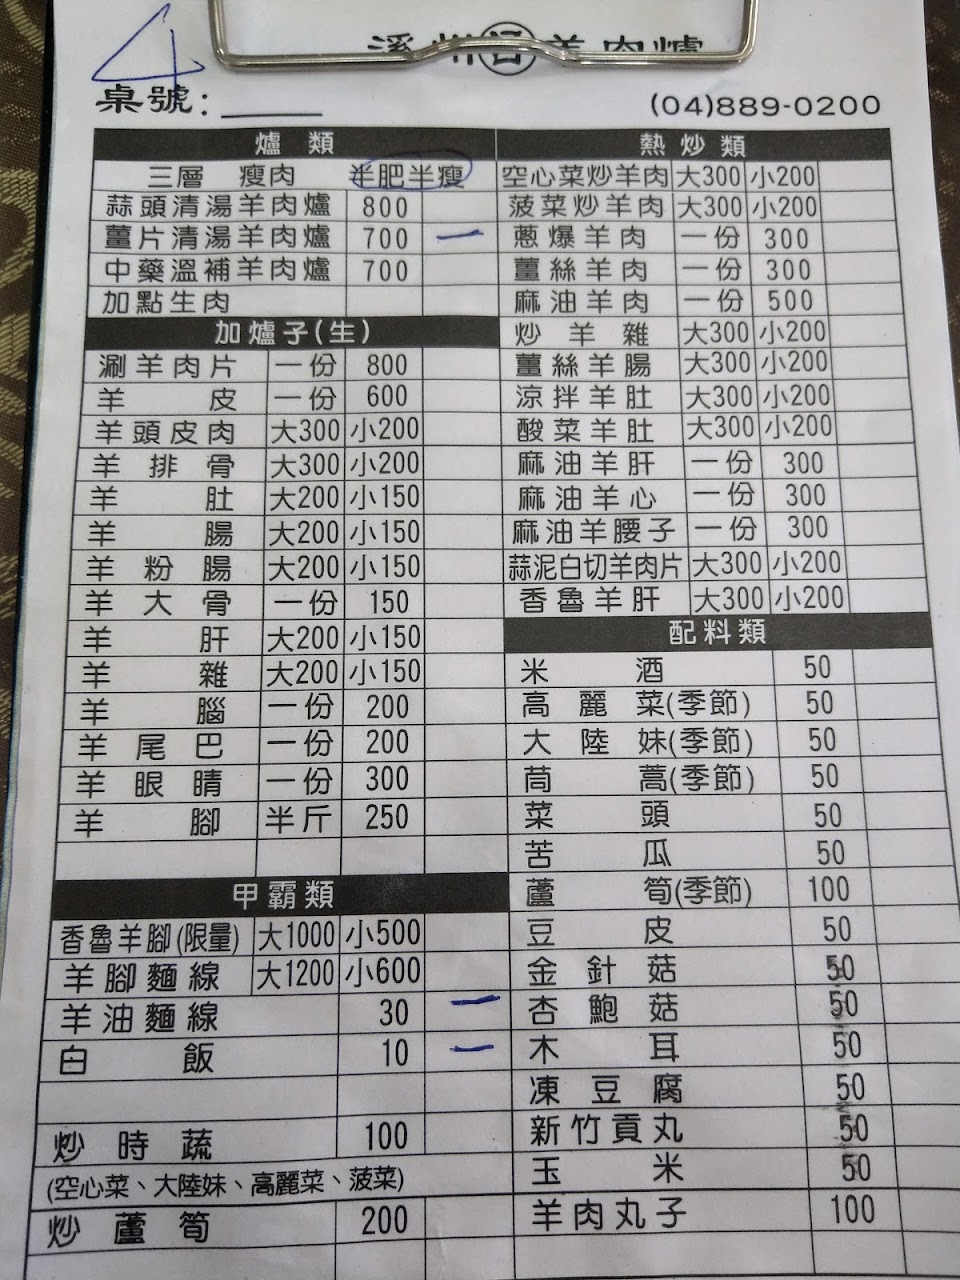 4
溪州 羊肉爐
桌號：
(04)889-0200
爐類
三層 瘦肉 半肥半瘦
蒜頭清湯羊肉爐 800
薑片清湯羊肉爐 700 一
中藥溫補羊肉爐 700
加點生肉
加爐子(生)
涮羊肉片 一份 800
羊皮 一份 600
羊頭皮肉 大300 小200
羊排骨 大300 小200
羊肚 大200 小150
羊腸 大200 小150
羊粉腸 大200 小150
羊大骨 一份 150
羊肝 大200 小150
羊雜 大200 小150
羊腦 一份 200
羊尾巴 一份 200
羊眼睛 一份 300
羊腳 半斤 250
甲霸類
香魯羊腳(限量) 大1000 小500
羊腳麵線 大1200 小600
羊油麵線 30 一
白飯 10 一
炒時蔬 100
(空心菜、大陸妹、高麗菜、菠菜)
炒蘆筍 200
熱炒類
空心菜炒羊肉 大300 小200
菠菜炒羊肉 大300 小200
蔥爆羊肉 一份 300
薑絲羊肉 一份 300
麻油羊肉 一份 500
炒羊雜 大300 小200
薑絲羊腸 大300 小200
涼拌羊肚 大300 小200
酸菜羊肚 大300 小200
麻油羊肝 一份 300
麻油羊心 一份 300
麻油羊腰子 一份 300
蒜泥白切羊肉片 大300 小200
香魯羊肝 大300 小200
配料類
米酒 50
高麗菜(季節) 50
大陸妹(季節) 50
茼蒿(季節) 50
菜頭 50
苦瓜 50
蘆筍(季節) 100
豆皮 50
金針菇 50
杏鮑菇 50
木耳 50
凍豆腐 50
新竹貢丸 50
玉米 50
羊肉丸子 100